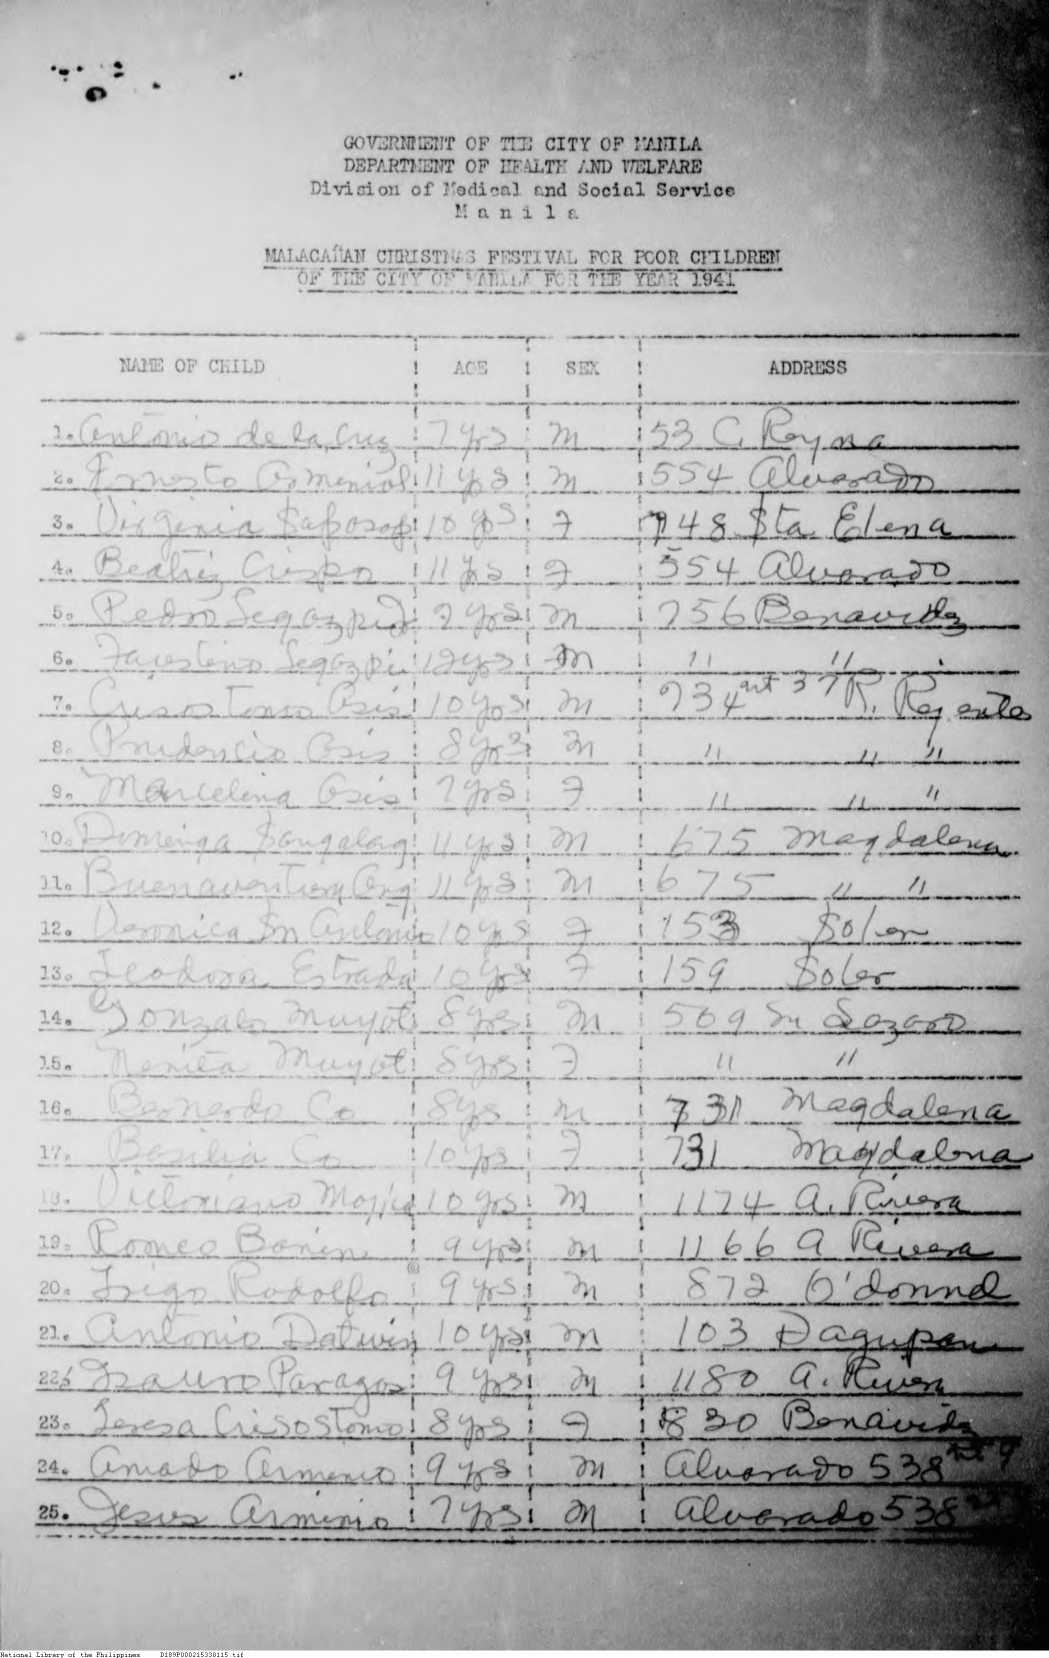 GOVERNMENT OF THE CITY OF MANILA
DEPARTMENT OF HEALTH AND WELFARE
Division of Medical and Social Service
Manila
MALACAÑAN CHRISTMAS FESTIVAL FOR POOR CHILDREN
OF THE CITY OF MANILA FOR THE YEAR 1941
NAME OF CHILD AGE SEX ADDRESS
1. Antonio de la Cruz 7 yrs M 53 C. Reyna
2. Ernesto Armenial 11 yrs M 554 Alvarado
3. Virginia 10 yrs F 748 Sta Elena
4. Beatriz Crispo 11 yrs F 554 Alvarado
5. Pedro Legazpi 7 yrs M 756 Benavidez
6. Faustino Legazpi 12 yrs M " "
7. Crisostomo Asis 10 yrs M 734 int 37 R. Regente
8. Prudencio Asis 8 yrs M " " "
9. Marcelina Asis 7 yrs F " " "
10. Dominga 11 yrs M 675 Magdalena
11. Buenaventura Ong 11 yrs M 675 " "
12. Veronica Sn Antonio 10 yrs F 153 Soler
13. Teodora Estrada 10 yrs F 159 Soler
14. Gonzalo Muyot 8 yrs M 509 Sn Lazaro
15. Nenita Muyot 8 yrs F " "
16. Bernardo Co 8 yrs M 731 Magdalena
17. Basilia Co 10 yrs F 731 Magdalena
18. Victoriano Mojica 10 yrs M 1174 A. Rivera
19. Romeo Bonin 9 yrs M 1166 A Rivera
20. Trigo Rodolfo 9 yrs M 872 O'donnel
21. Antonio Datuin 10 yrs M 103 Dagupan
22. Isauro Paragas 9 yrs M 1180 A. Rivera
23. Teresa Crisostomo 8 yrs F 830 Benavidez
24. Amado Armenio 9 yrs M Alvarado 538 int 9
25. Jesus Arminio 7 yrs M Alvarado 538
National Library of the Philippines D189P000215330115.tif